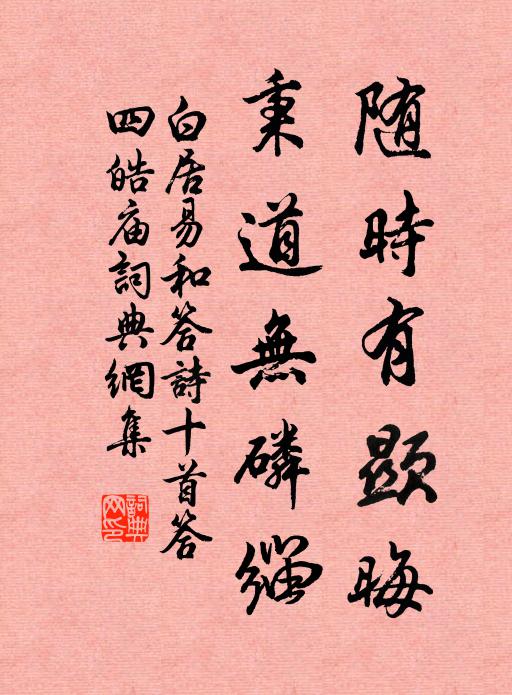 随時有顯晦
秉道無磷緇
白居易和答詩十首答
四皓庙詞典網集
詞典
网印